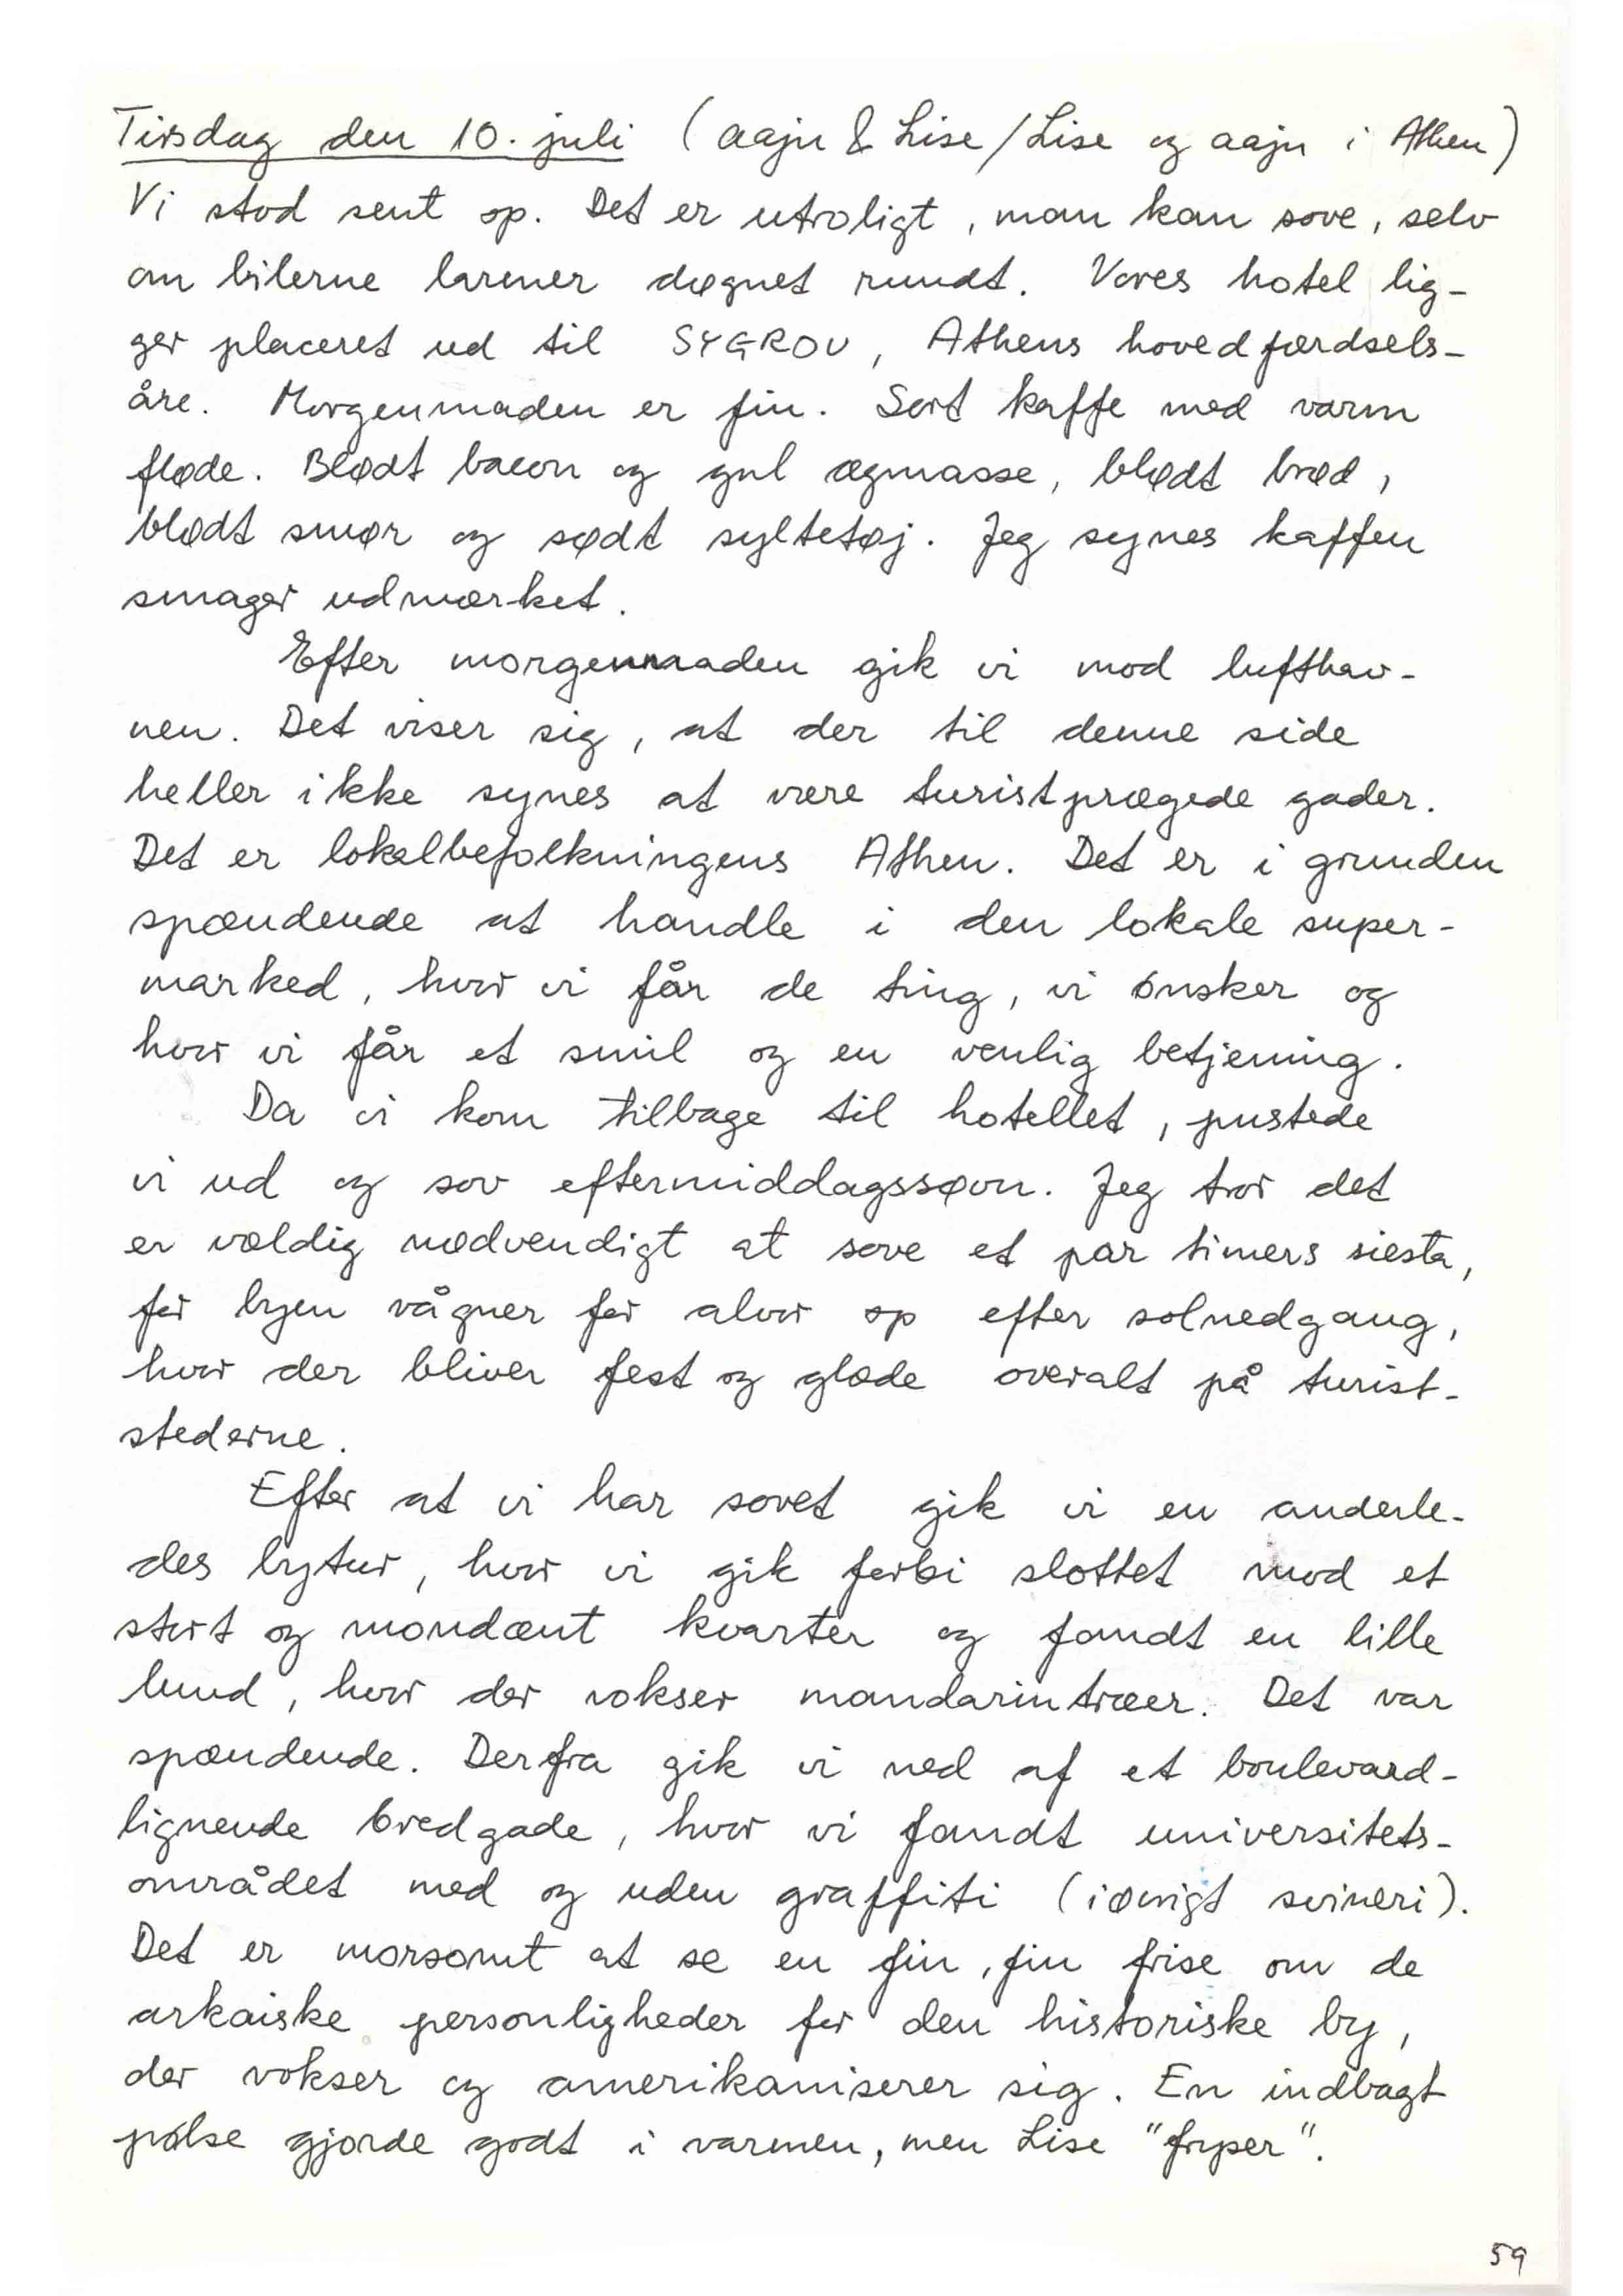 Tirsdag den 10. juli (aaju & Lise/Lise og aaju i Athen)
Vi stod sent op. Det er utroligt, man kan sove, selv
om bilerne larmer døgnet rundt. Vores hotel lig-
ger placeret ud til SYGROU, Athens hovedfærdsels-
åre. Morgenmaden er fin. Sort kaffe med varm
fløde. Blødt bacon og gul ægmasse, blødt brød,
blødt smør og sødt syltetøj. Jeg synes kaffen
smager udmærket.
Efter morgenmaden gik vi mod lufthav-
nen. Det viser sig, at der til denne side
heller ikke synes at være turistprægede gader.
Det er lokalbefolkningens Athen. Det er i grunden
spændende at handle i den lokale super-
marked, hvor vi får de ting, vi ønsker og
hvor vi får et smil og en venlig betjening.
Da vi kom tilbage til hotellet, pustede
vi ud og sov eftermiddagssøvn. Jeg tror det
er vældig nødvendigt at sove et par timers siesta,
før byen vågner for alvor op efter solnedgang,
hvor der bliver fest og glæde overalt på turist-
stederne.
Efter at vi har sovet gik vi en anderle-
des bytur, hvor vi gik forbi slottet mod et
stort og mondænt kvarter og fandt en lille
lund, hvor der vokser mandarintræer. Det var
spændende. Derfra gik vi ned af et boulevard-
lignende bredgade, hvor vi fandt universitets-
området med og uden graffiti (iøvrigt svineri).
Det er morsomt at se en fin, fin frise om de
arkaiske personligheder for den historiske by,
der vokser og amerikaniserer sig. En indbagt
pølse gjorde godt i varmen, men Lise "fryser".
59